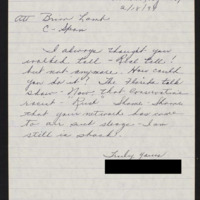 Att Brian Lamb
C-Span
I always thought you
walked tall - Real tall!
but not anymore. How could
you do it! The Florida talk
show - Now, that Conservative
racist - Rush Shame - Shame
that your network has now
to air such sleaze. I am
still in shock!
Truly yours